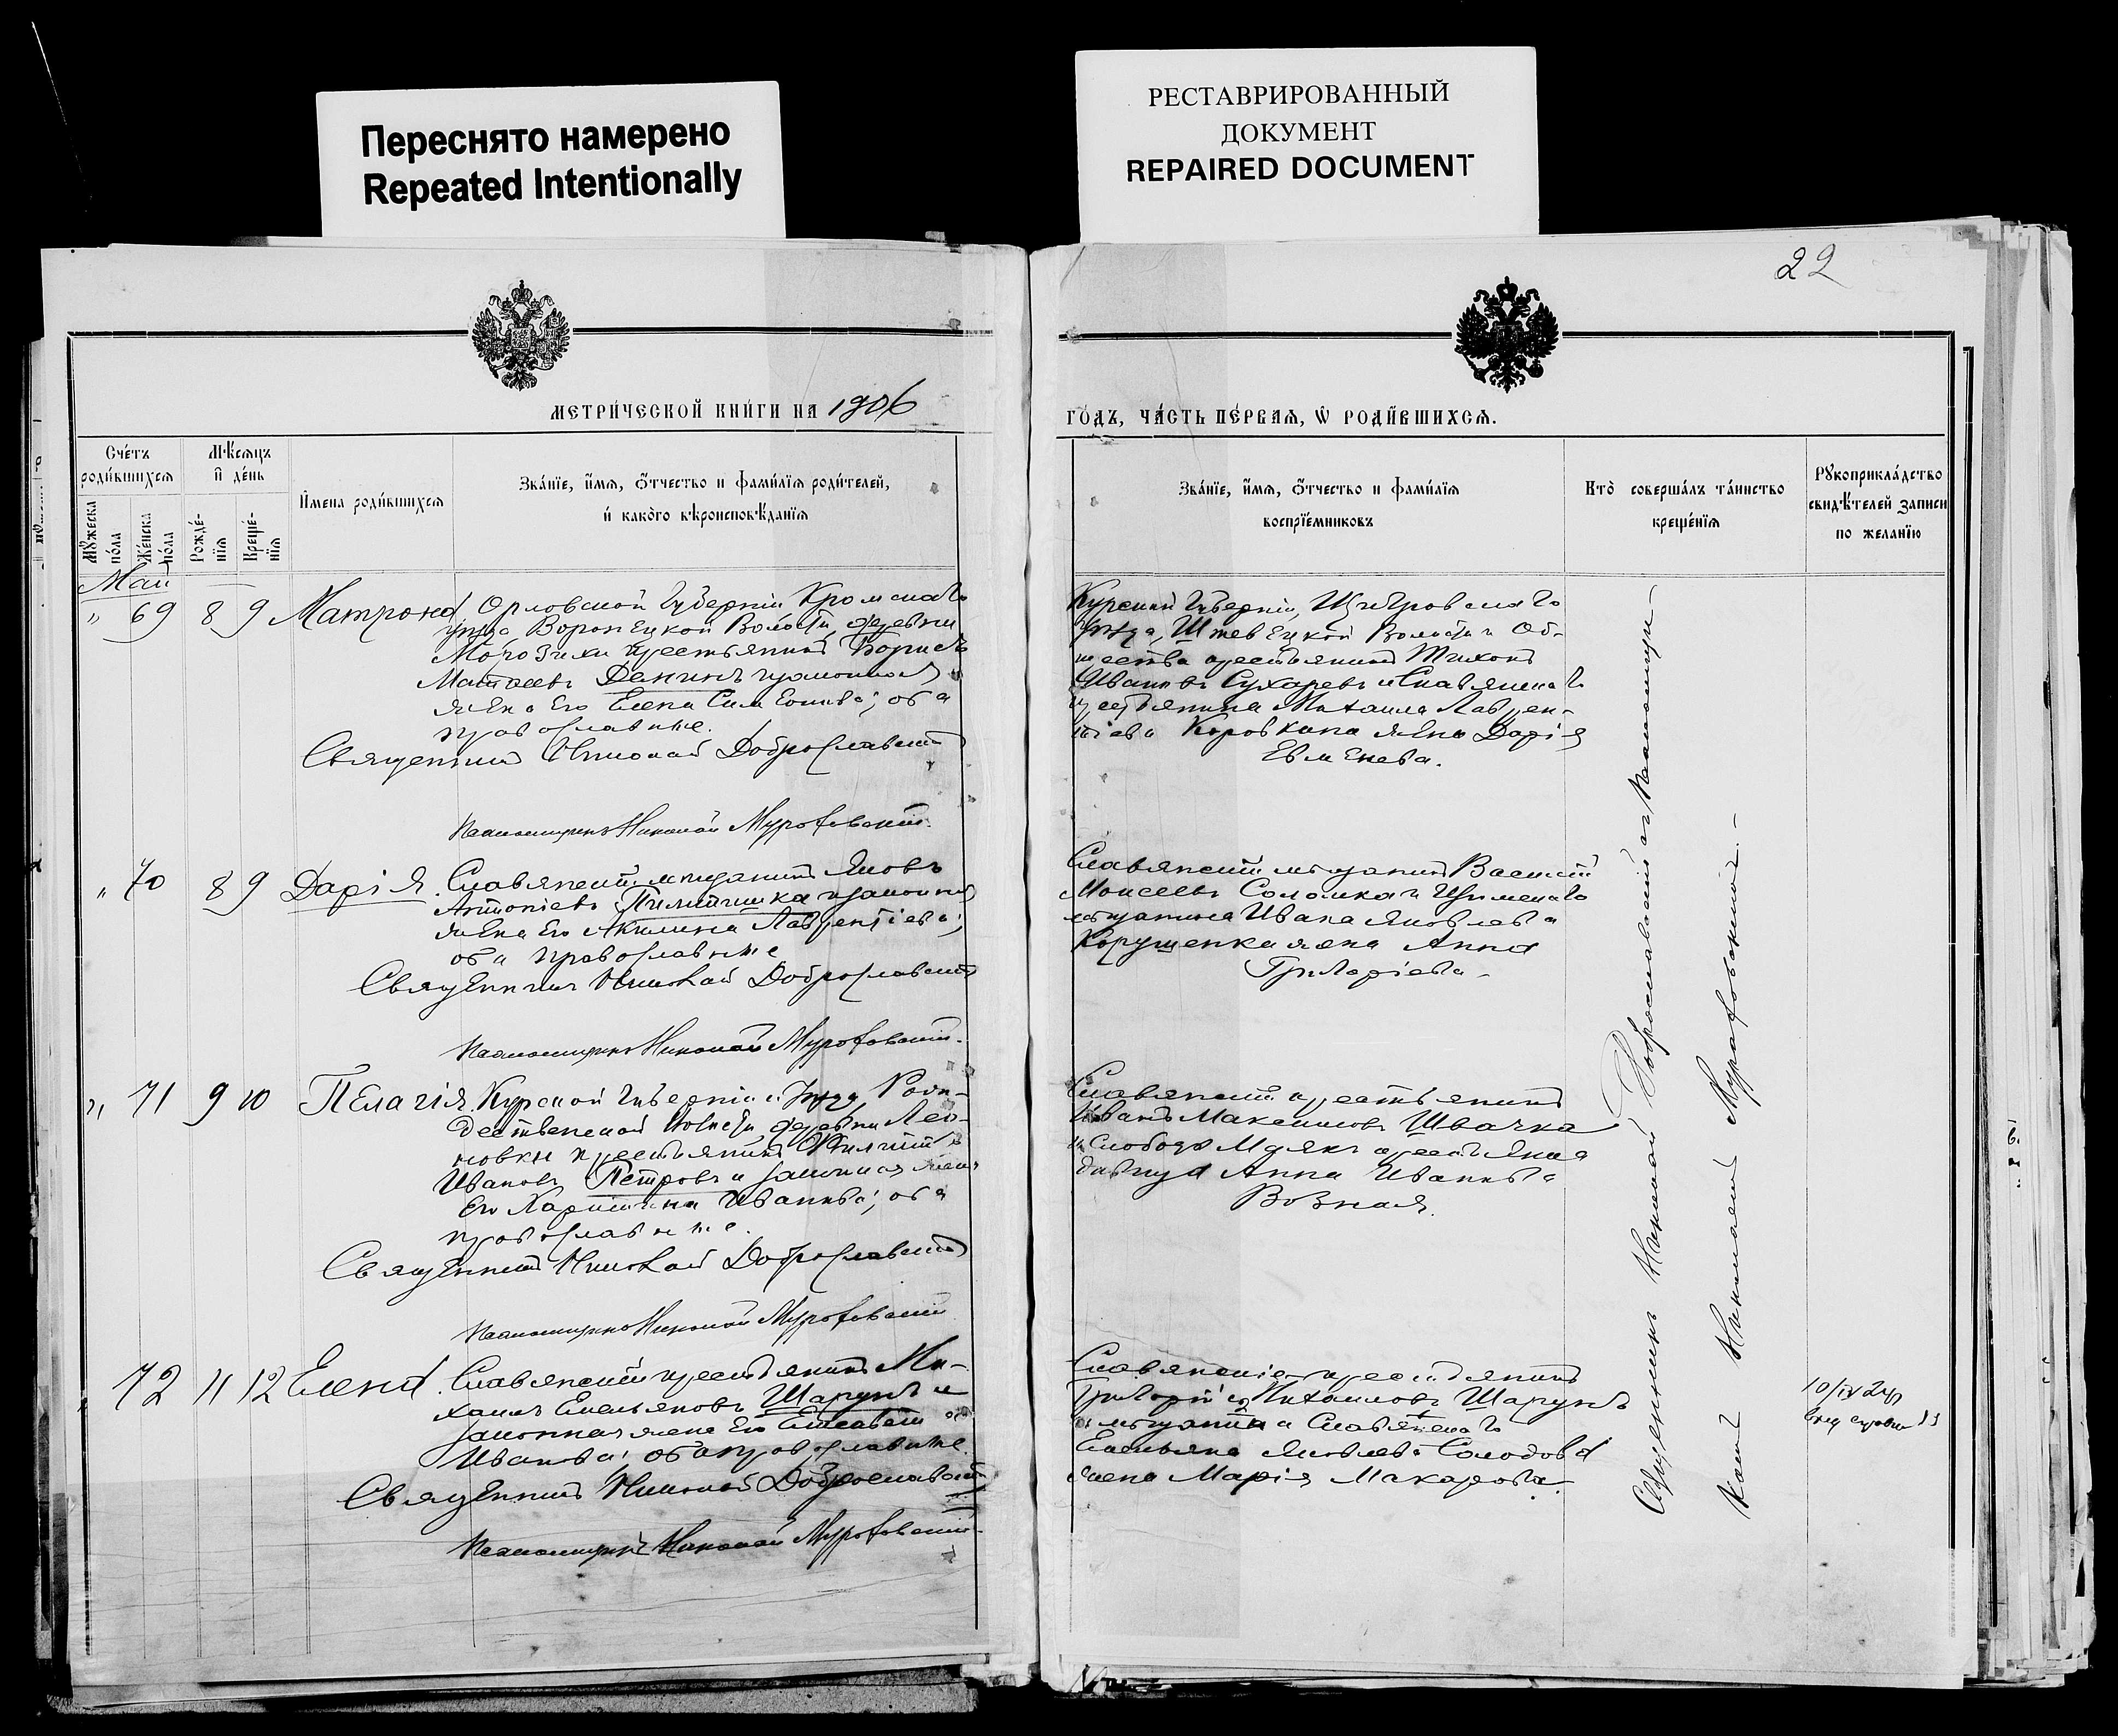 Переснято намерено
Repeated Intentionally
РЕСТАВРИРОВАННЫЙ
ДОКУМЕНТ
REPAIRED DOCUMENT
22
МЕТРИ́ЧЕСКОЙ КНИ́ГИ НА 1906
ГО́ДЪ, ЧА́СТЬ ПЕ́РВАѦ, Ѡ РОДИ́ВШИХСѦ.
Сче́тъ
роди́вшихсѧ
Мѣ́сѧцъ
и҆ де́нь
Мꙋ́жеска
по́ла
Же́нска
по́ла
Рожде́-
нїѧ
Креще́-
нїѧ
И҆мена роди́вшихсѧ
Зва́нїе, и҆́мѧ, ѻ҆́тчество и фами́лїѧ роди́телей,
и҆ како́гѡ вѣроисповѣ́данїѧ
Зва́нїе, и҆́мѧ, ѻ҆́тчество и фами́лїѧ
воспрїе́мниковъ
Кто̀ соверша́лъ та́инство
креще́нїѧ
Рꙋкоприкла́дство
свидѣ́телей записи
по желанїю
Май
" 69 8 9 Матрона
Орловской Губерніи Кромскаго
уѣзда Воронецкой Волости, деревни
Морозихи крестьянинъ Борисъ
Матѳеевъ Денинъ и законная
жена его Елена Симеонова; оба
православные.
Священникъ Николай Доброславскій
Псаломщикъ Николай Мурофовскій.
Курской Губерніи, Щигровскаго
уѣзда, Волости и Об-
щества крестьянинъ Тихонъ
Ивановъ Сухаревъ и Славянскаго
крестьянина Михаила Лаврен-
тіева Коровкина жена Дарія
Евменева.
" 70 8 9 Дарія
Славянскій мѣщанинъ Яковъ
Антоніевъ и законная
жена его Акилина Лаврентіева;
оба православные
Священникъ Николай Доброславскій
Псаломщикъ Николай Мурофовскій.
Славянскій мѣщанинъ Василій
Моисеевъ Соломка и
мѣщанина Ивана Яковлева
жена Анна
" 71 9 10 Пелагія
Курской Губерніи и Уѣзда Рож-
дественской Волости деревни Лео-
новки крестьянинъ Филиппъ
Ивановъ Петровъ и законная жена
его Харитина Иванова; оба
православные.
Священникъ Николай Доброславскій
Псаломщикъ Николай Мурофовскій
Славянскій крестьянинъ
Иванъ Максимовъ Швачка
и Слободы Маякъ крестьянка
дѣвица Анна Иванова
Возная.
72 11 12 Елена
Славянскій крестьянинъ Ми-
хаилъ Емельяновъ Шарунъ и
законная жена его Елисавета
Иванова; оба православные.
Священникъ Николай Доброславскій
Псаломщикъ Николай Мурофовскій
Славянскіе крестьянинъ
Григорій Михаиловъ Шарунъ
и мѣщанина Славянскаго
Емельяна Яковлева Солодова
жена Марія Макарова.
Священникъ Николай Доброславскій съ псаломщи-
комъ Николаемъ Мурофовскимъ.